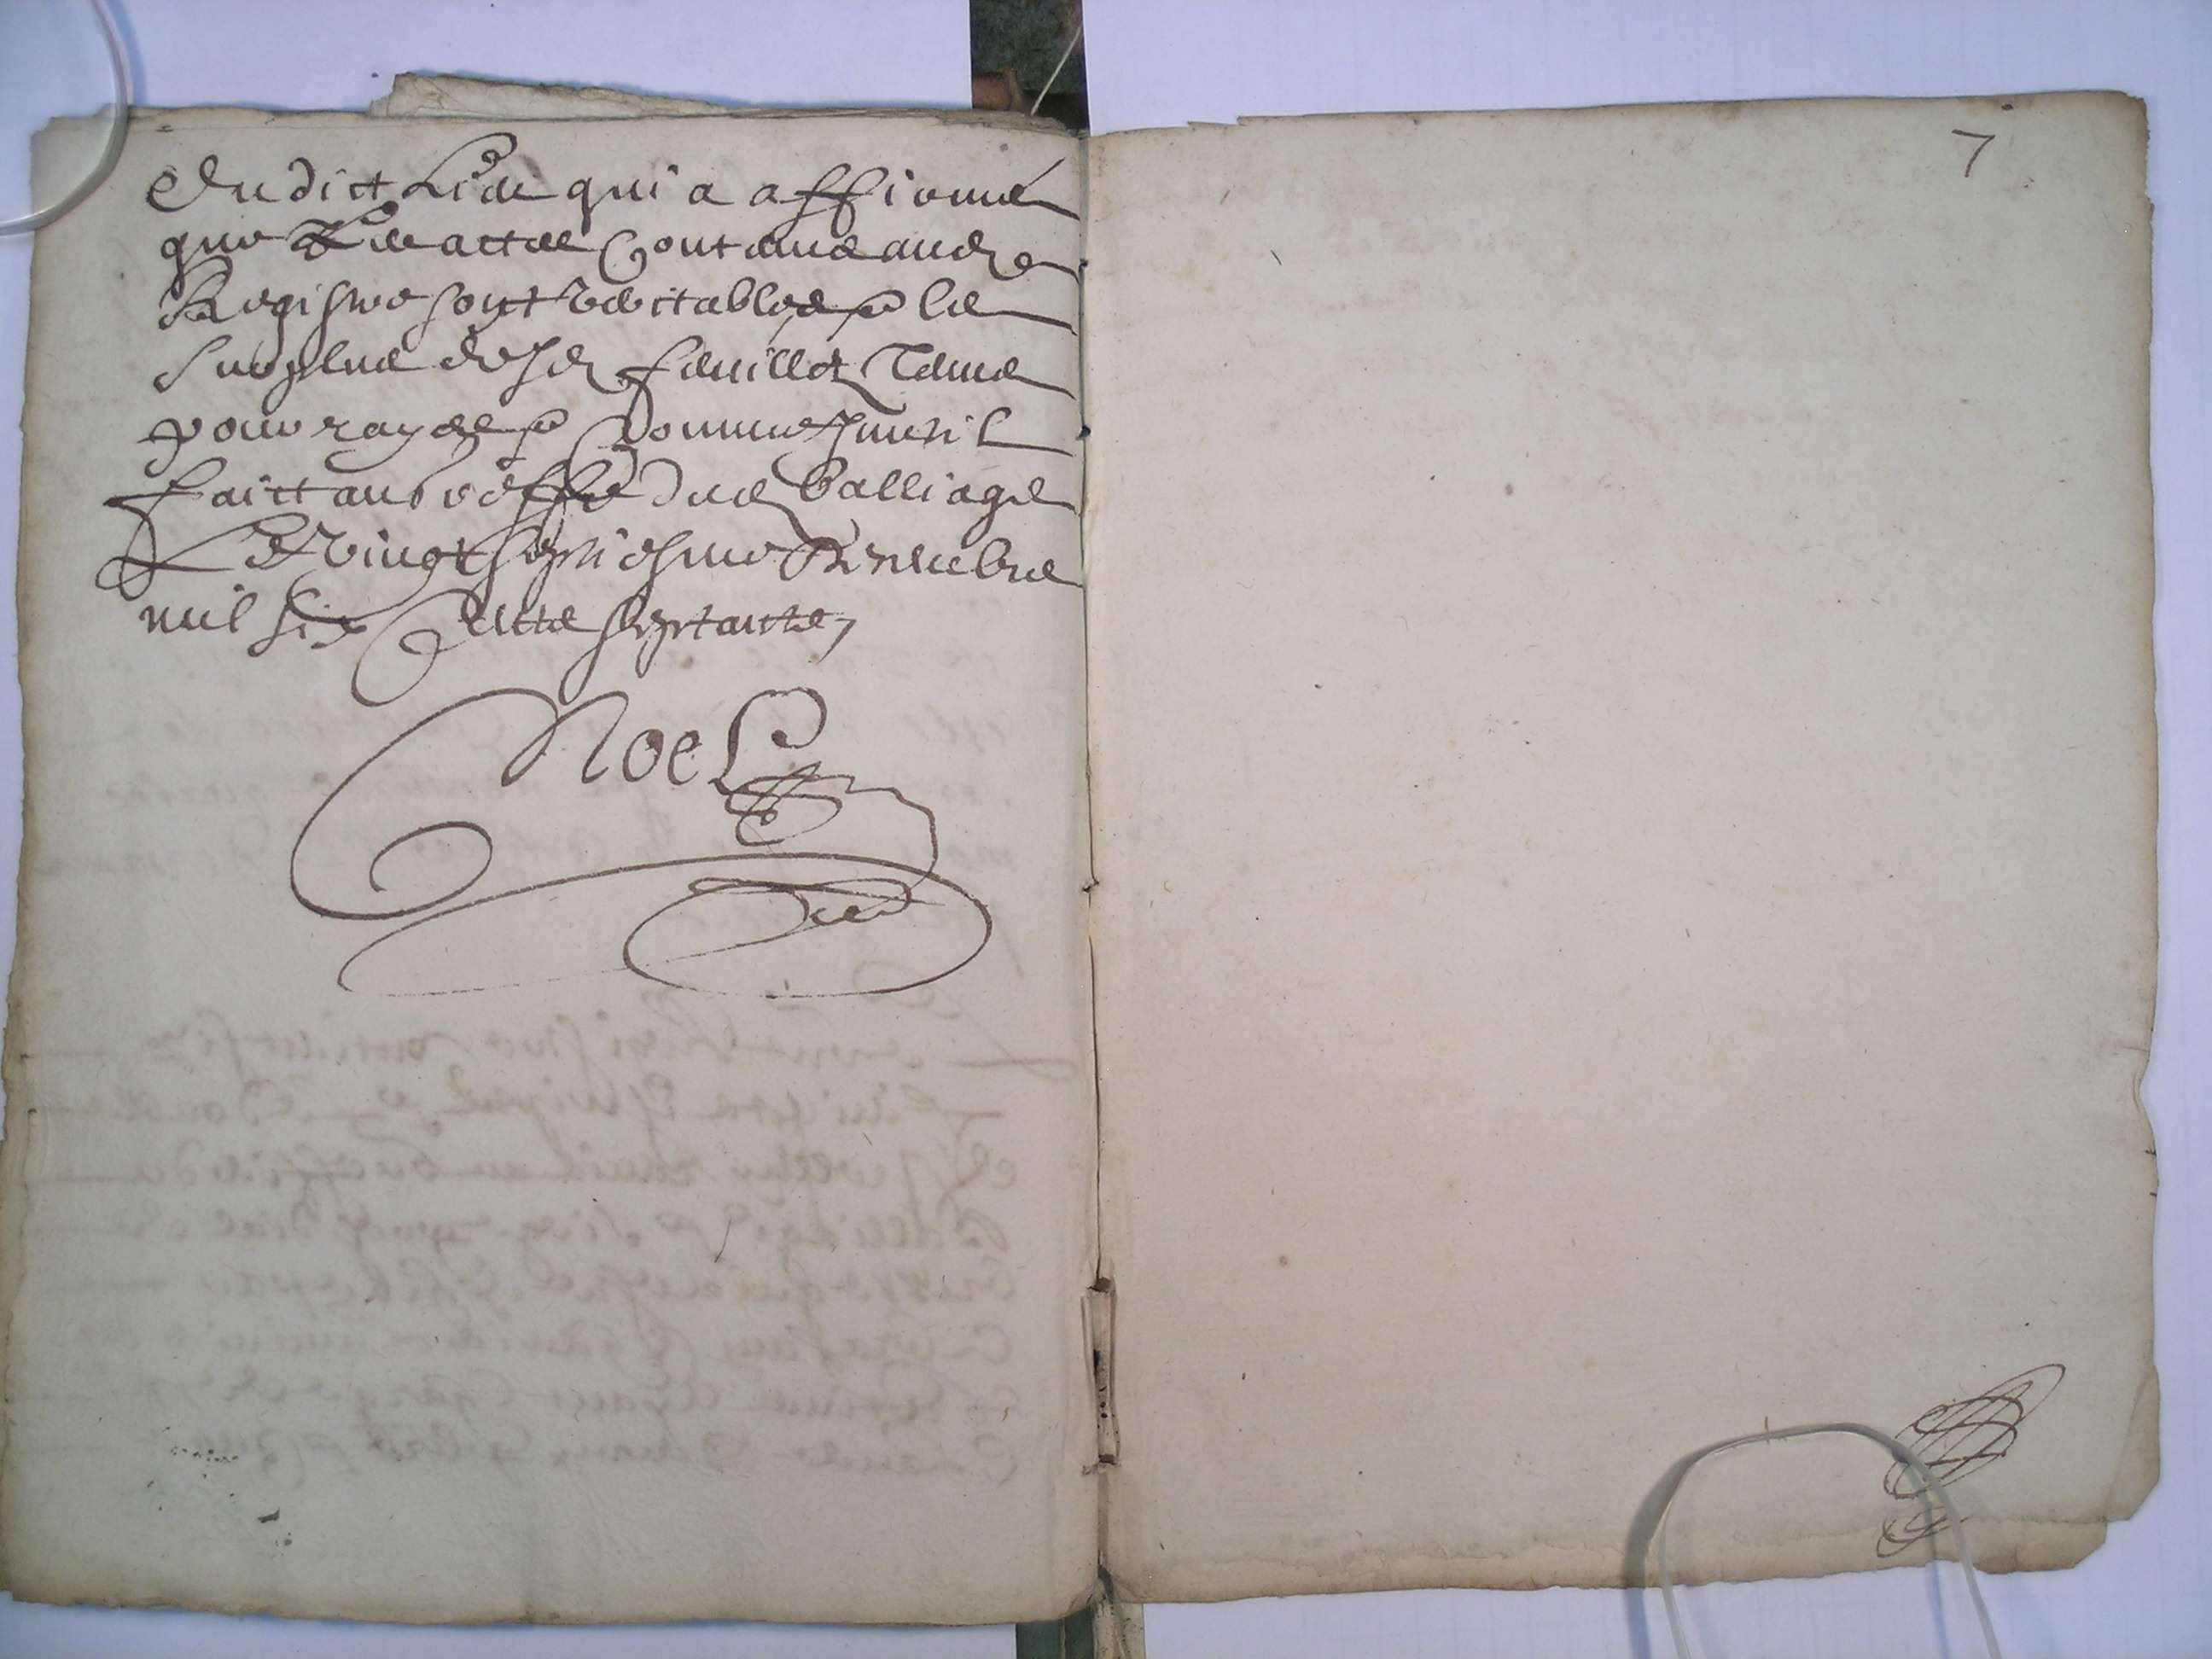 dudict lieu qui a affirmé
que les actes contenus audit
Registre sont veritables et le
surplus desd. feuillets tenus
pour rayés et comme inutil
faict au greffe dud. balliage
le vingt septiesme decembre
mil six cents septante,
Noel
7